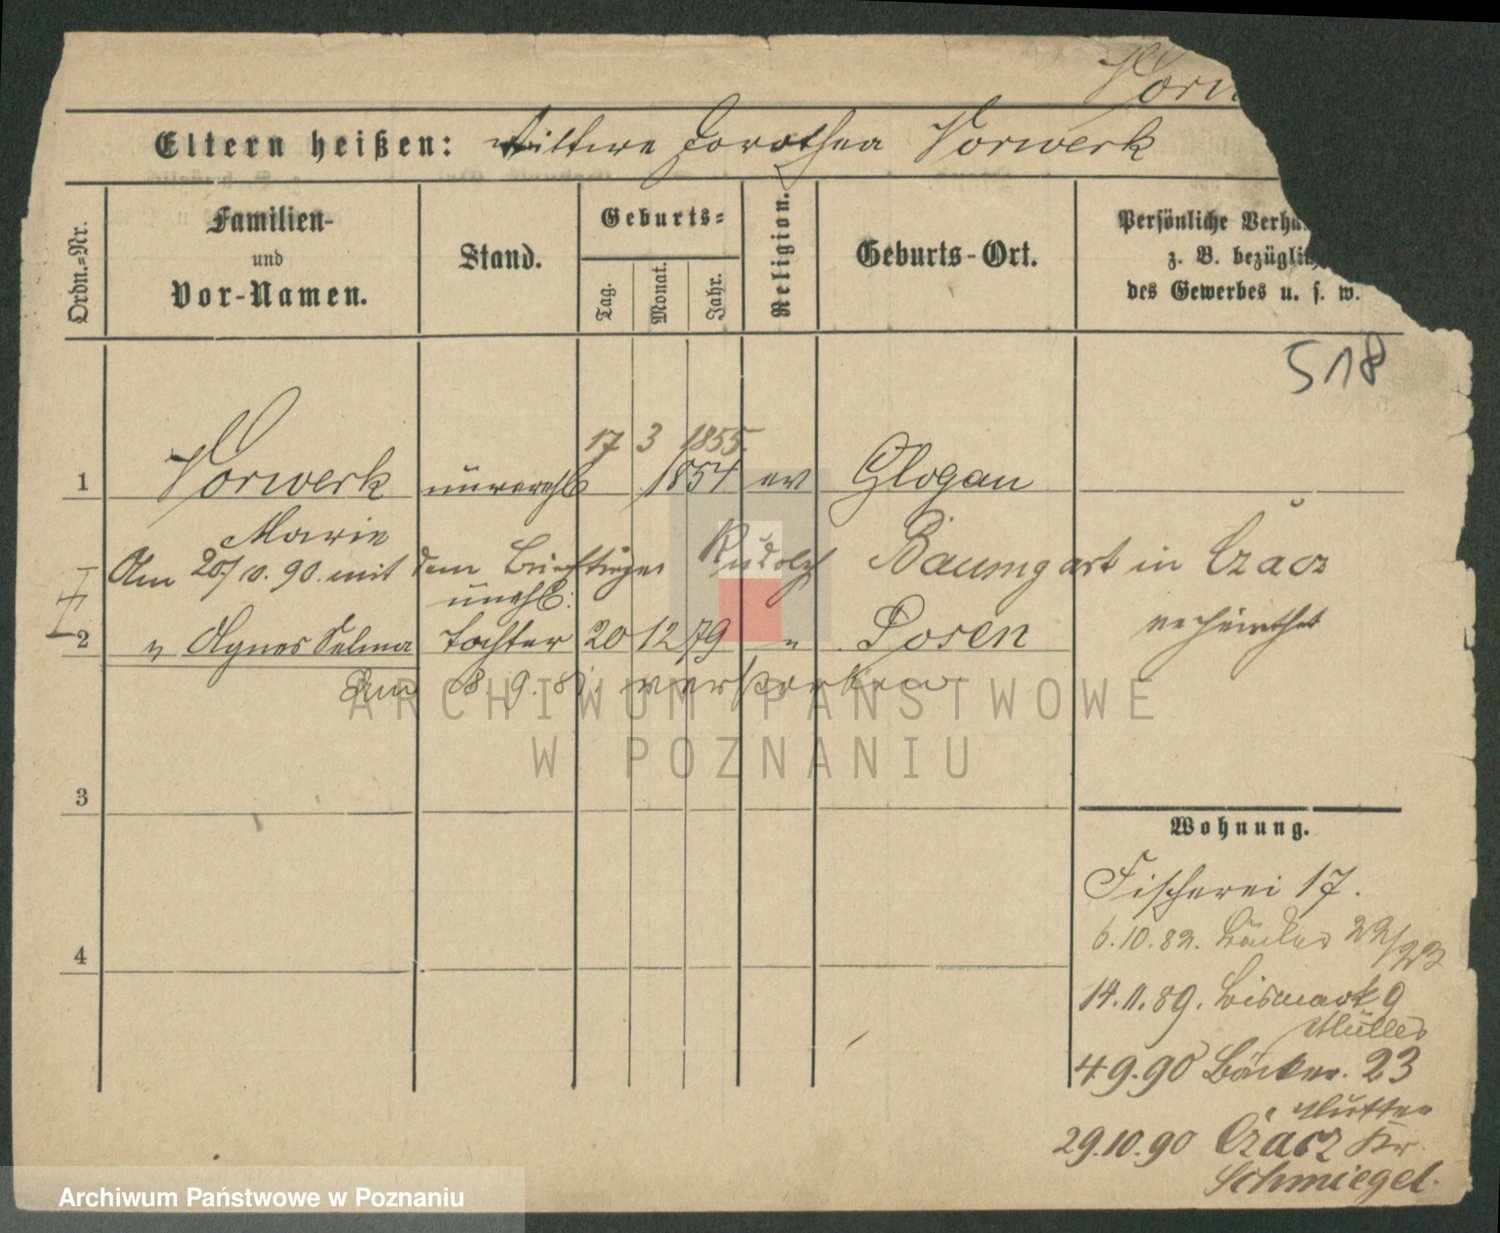 Vorw
Eltern heißen: Wittwe Dorothea Vorwerk
Ordn.=Nr.
Familien-
und
Vor-Namen.
Stand.
Geburts=
Tag.
Monat.
Jahr.
Religion.
Geburts-Ort.
Persönliche Verhä
z. B. bezüglich
des Gewerbes u. s. w.
518
17 3 1855.
1 Vorwerk unverehl 1854 ev Glogau
Marie
Am 20/10.90. mit dem Briefträger Rudolf Baumgart in Czacz
verheirathet
unehl:
2 " Agnes Selma Tochter 20 12 79 " Posen
Am 8.9.81. verstorben
3
4
Wohnung.
Fischerei 17.
6.10.82. Bäcker 22/23
14.11.89. Bismark 9
Müller
4.9.90 Bäcker. 23
Mutter
29.10.90 Czacz Kr.
Schmiegel.
ARCHIWUM PAŃSTWOWE
W POZNANIU
Archiwum Państwowe w Poznaniu